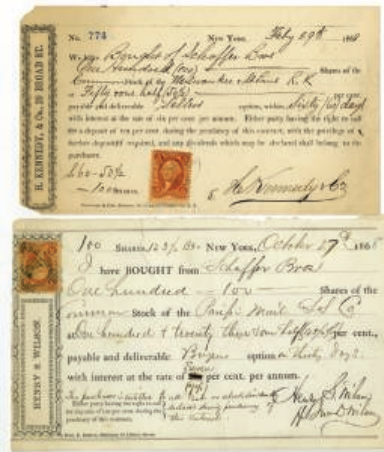 H. KENNEDY, & CO., 29 BROAD ST.
No. 774 New York, Feby 29th 1868
We have Bought of Schaffer Bros
One Hundred (100) Shares of the
Common Stock of the Milwaukee & St Paul R. R.
at Fifty one half (50½) per cent.
payable and deliverable Sellers option, within Sixty (60) days
with interest at the rate of six per cent per annum. Either party having the right to call
for a deposit of ten per cent during the pendency of this contract, with the privilege of
further deposits if required, and any dividends which may be declared shall belong to the
purchaser.
S60-50½
-100 SHARES.
H. Kennedy & Co
HENRY S. WILSON.
100 SHARES 123½ B30 NEW YORK, October 27th 1868
I have BOUGHT from Schaffer Bros
One hundred — 100 — Shares of the
Common Stock of the Pacific Mail S S Co
at One hundred & twenty three one half per cent.,
payable and deliverable Buyers option in thirty days
with interest at the rate of Seven per cent. per annum.
Either party having the right to call
for deposits of ten per cent during the
pendency of this contract.
Henry S. Wilson